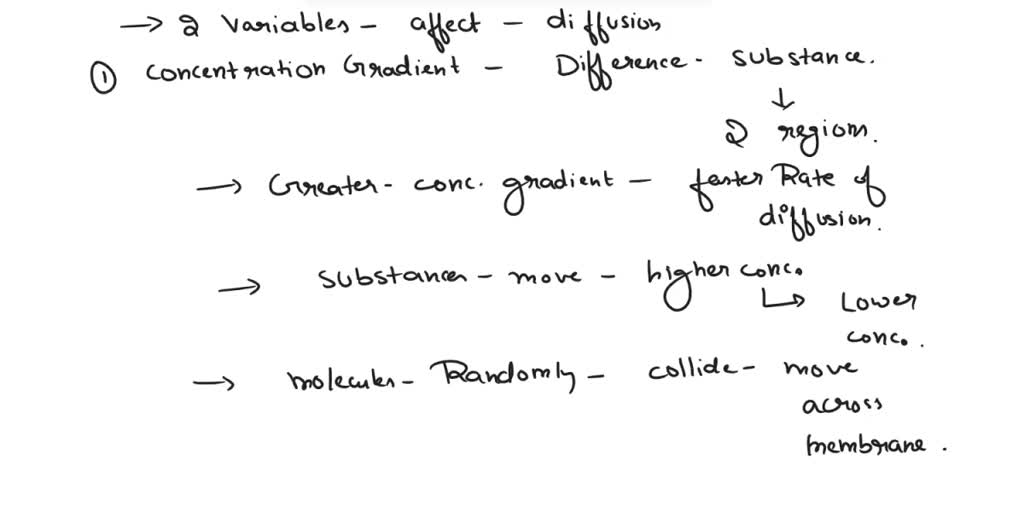 → 2 Variables - affect - diffusion
① Concentration Gradient - Difference - substance.
↓
2 regions.
→ Greater - conc. gradient - faster Rate of
diffusion.
→ substances - move - higher conc.
↳ Lower
conc.
→ molecules - Randomly - collide - move
across
membrane.